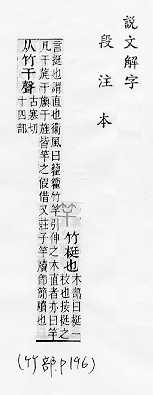 說文解字
段注本
竹梃也木部曰梃一
枚也按梃之
言挺也謂直也衛風曰籊籊竹竿引伸之木直者亦曰竿
凡干旄干旟干旌皆竿之假借又莊子竿牘卽簡牘也
从竹干聲古寒切
十四部
(竹部.P196)